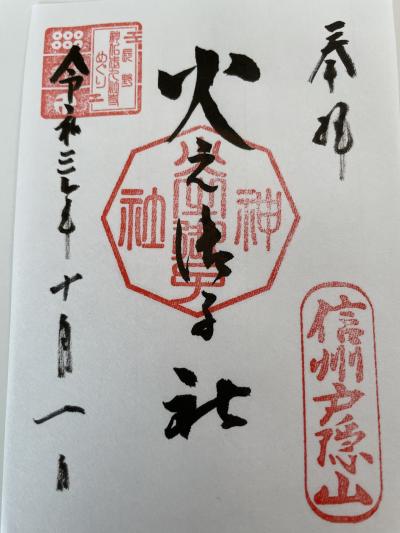 奉拝
信州戸隠山
火之御子社
神社
令和三年十月一日
めぐり